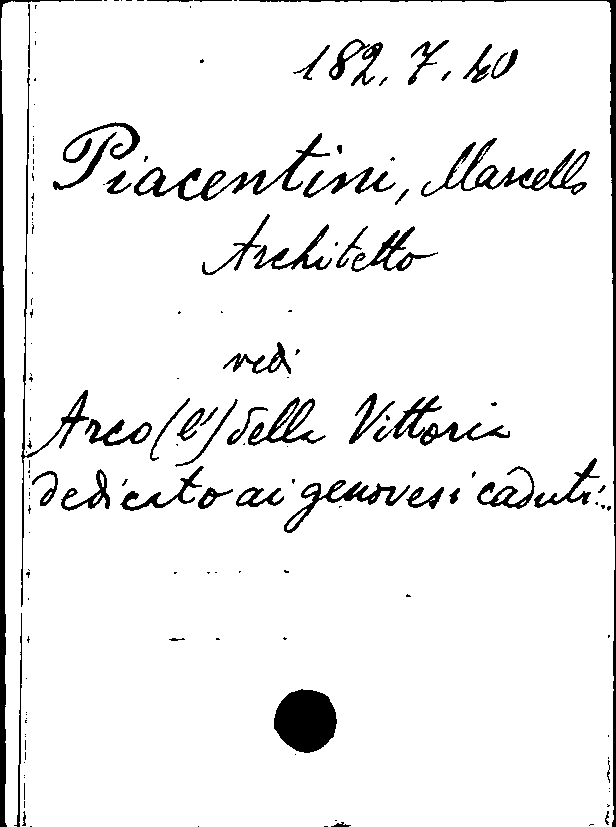 182.7.40
Piacentini, Marcello
Architetto
vedi
Arco (l') della Vittoria
dedicato ai genovesi caduti...